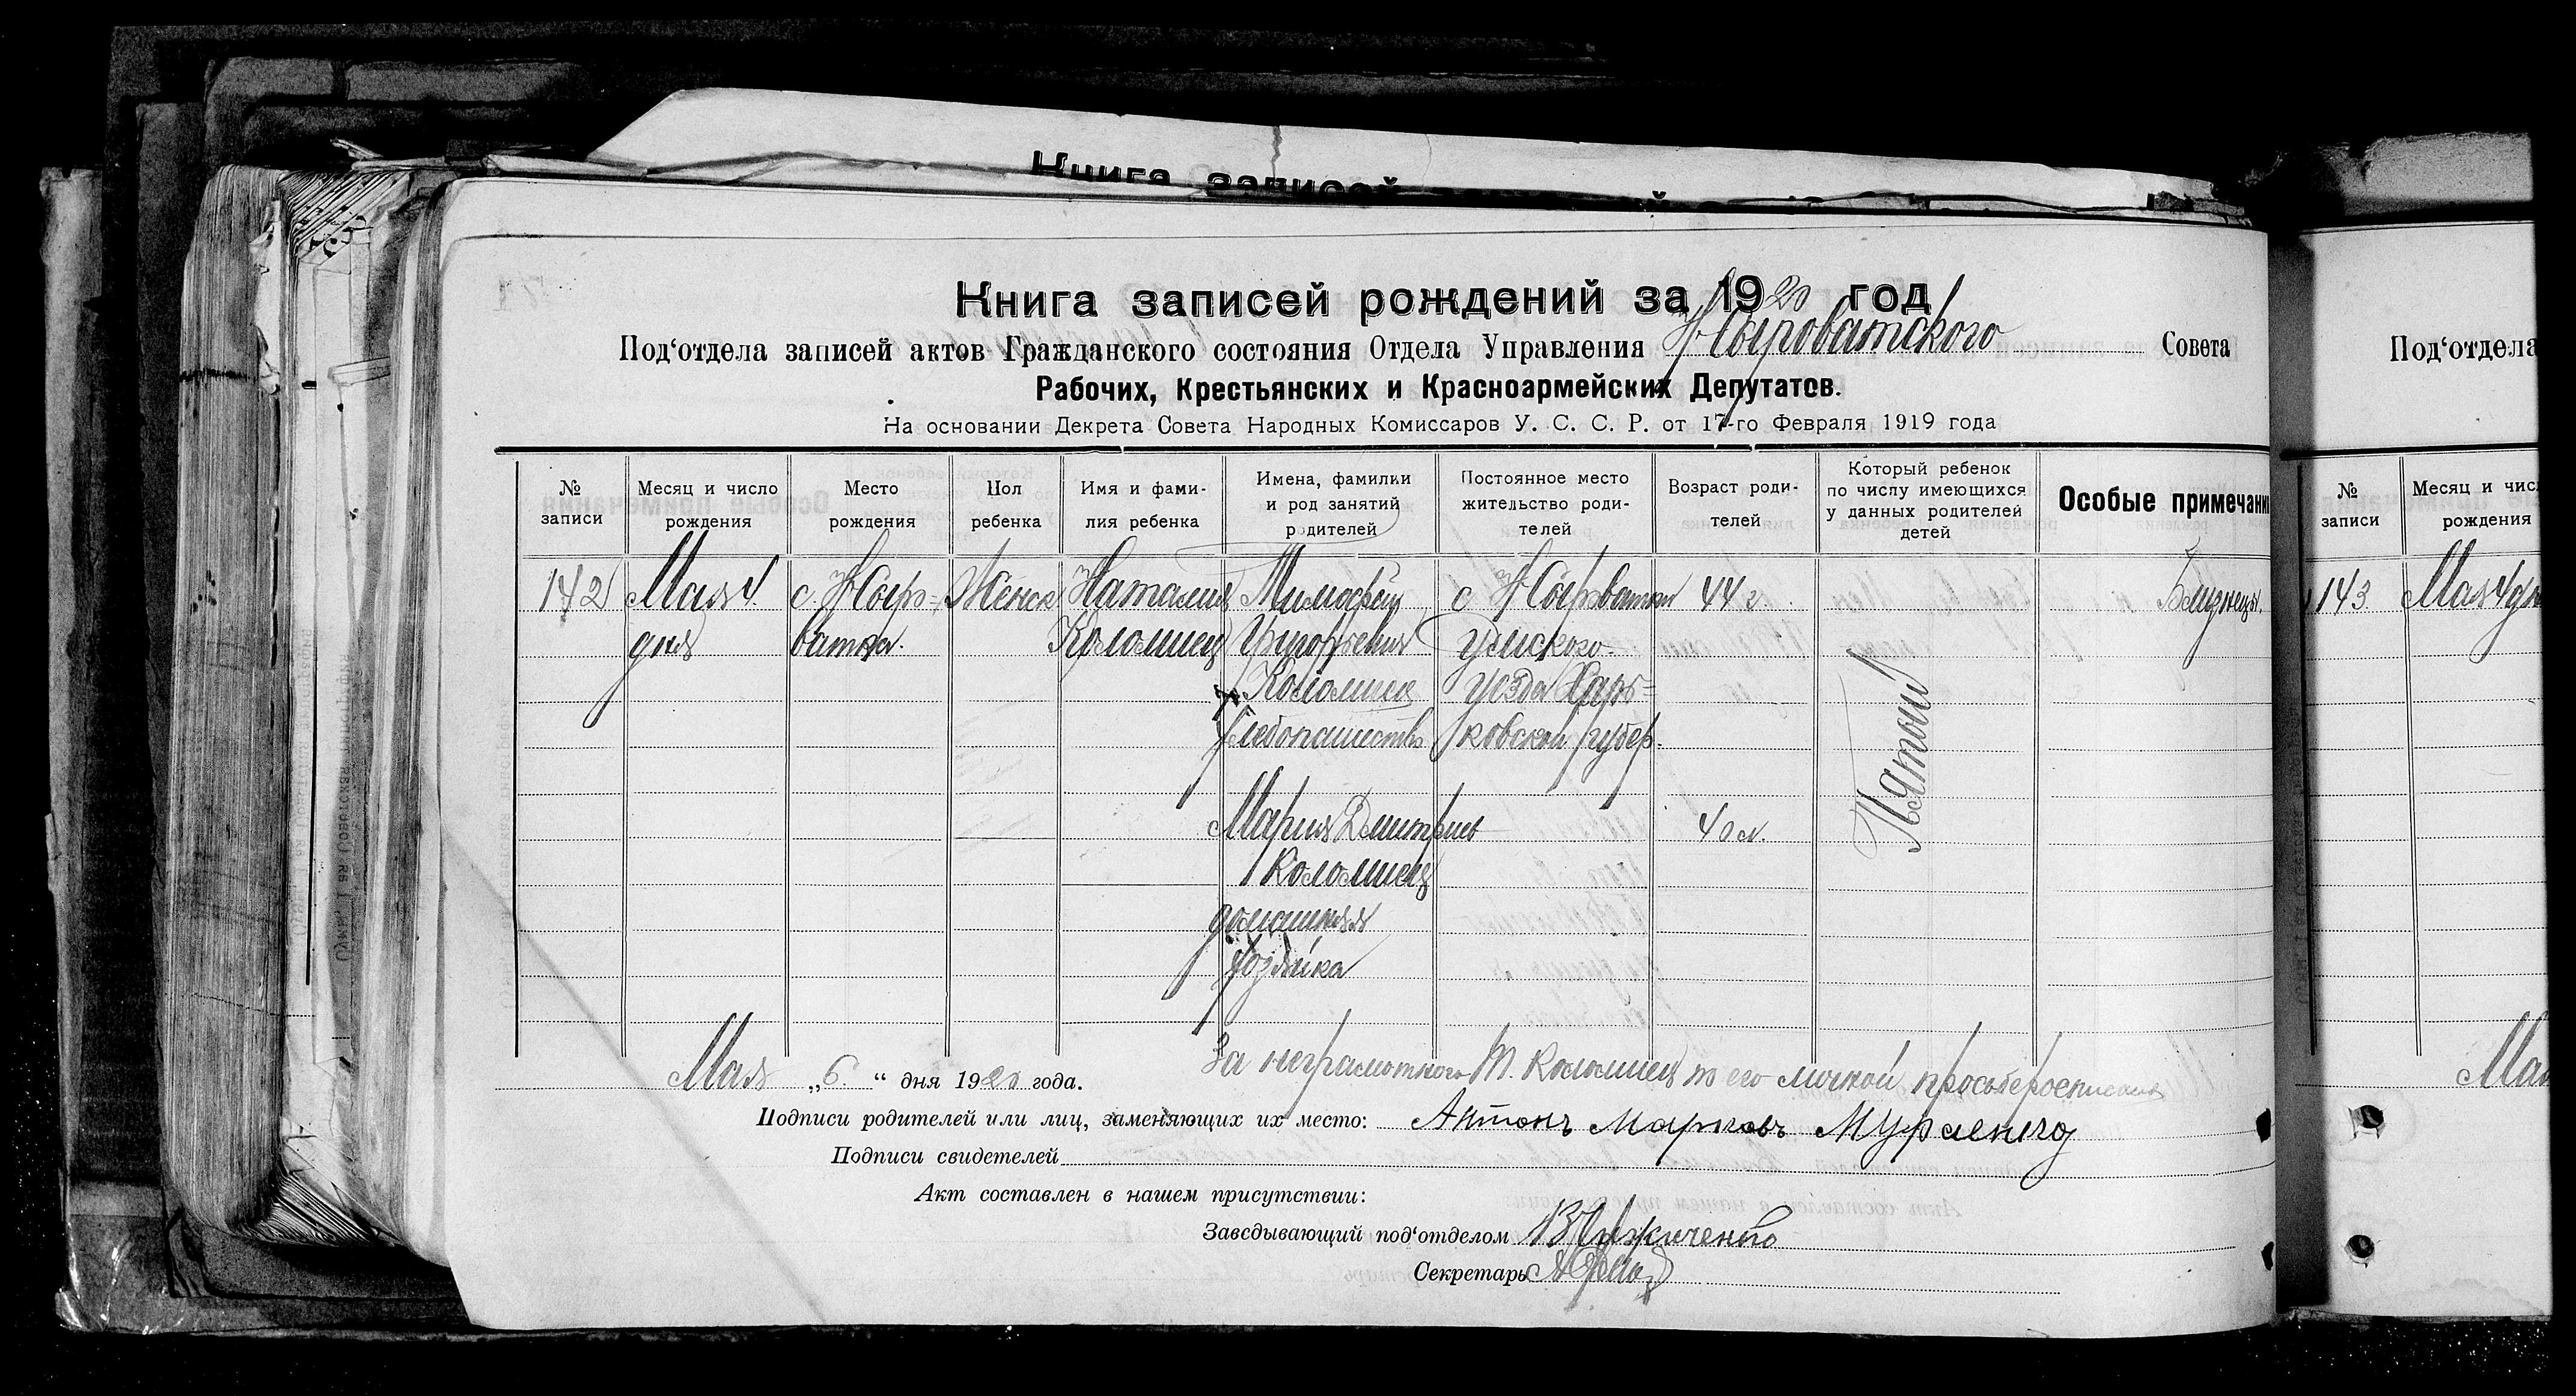 Книга записей
Книга записей рождений за 1920 год
Под‘отдела записей актов Гражданского состояния Отдела Управления Н-Сыроватского Совета
Рабочих, Крестьянских и Красноармейских Депутатов.
На основании Декрета Совета Народных Комиссаров У. С. С. Р. от 17-го Февраля 1919 года
№ записи
Месяц и число рождения
Место рождения
Пол ребенка
Имя и фами-
лия ребенка
Имена, фамилки
и род занятий
родителей
Постоянное место
жительство роди-
телей
Возраст роди-
телей
Который ребенок
по числу имеющихся
у данных родителей
детей
Особые примечани
142
Мая 4
дня
с. Н-Сыро-
ватка.
Женск
Наталия
Коломиец
Тимофей
Григорьевич
Коломиец
хлебопашество
Мария Дмитриев
Коломиец
домашняя
хозяйка
с Н-Сыроватки
Сумского
уезда Харь=
ковской губер.
44 г.
40 л.
Пятый
Близнецы.
Мая „6.“ дня 1920 года.
За неграмотного Т. Коломиец по его личной просьбе росписался
Подписи родителей или лиц, заменяющих их место: Антонъ Марковъ Мурленко
Подписи свидетелей
Акт составлен в нашем присутствии:
Заведывающий под‘отделом
Секретарь
Под‘отдела
№ записи
Месяц и чис
рождения
143
Мая 4 дн
Мая